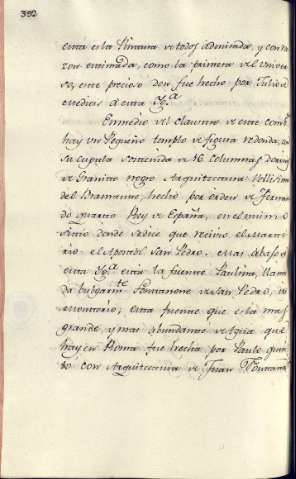 392
esta es la Pintura de todos admirada, y con ra
zon estimada, como la primera del Univer
so, este precioso don fue hecho por Julio de
Medicis a esta Yg.ª
En medio del claustro de este Comb.
hay un Pequeño templo de figura redonda, con
su cupula sostenida de 16 columnas doricas
de Granito negro Arquitectura bellisima
del Bramante, hecho por orden de Fernan
do quarto Rey de España, en el mismo
sitio donde se dice que recivio el Marti
rio el Apostol San Pedro. Mas abajo de
esta Yg.ª esta la fuente Paulina, llama
da bulgarm.te Fontanone de San Pedro, in
Montorio; esta fuente que es la mas
grande, y mas abundante de Agua que
hay en Roma fue hecha por Paulo quin
to con Arquitectura de Juan Fontana